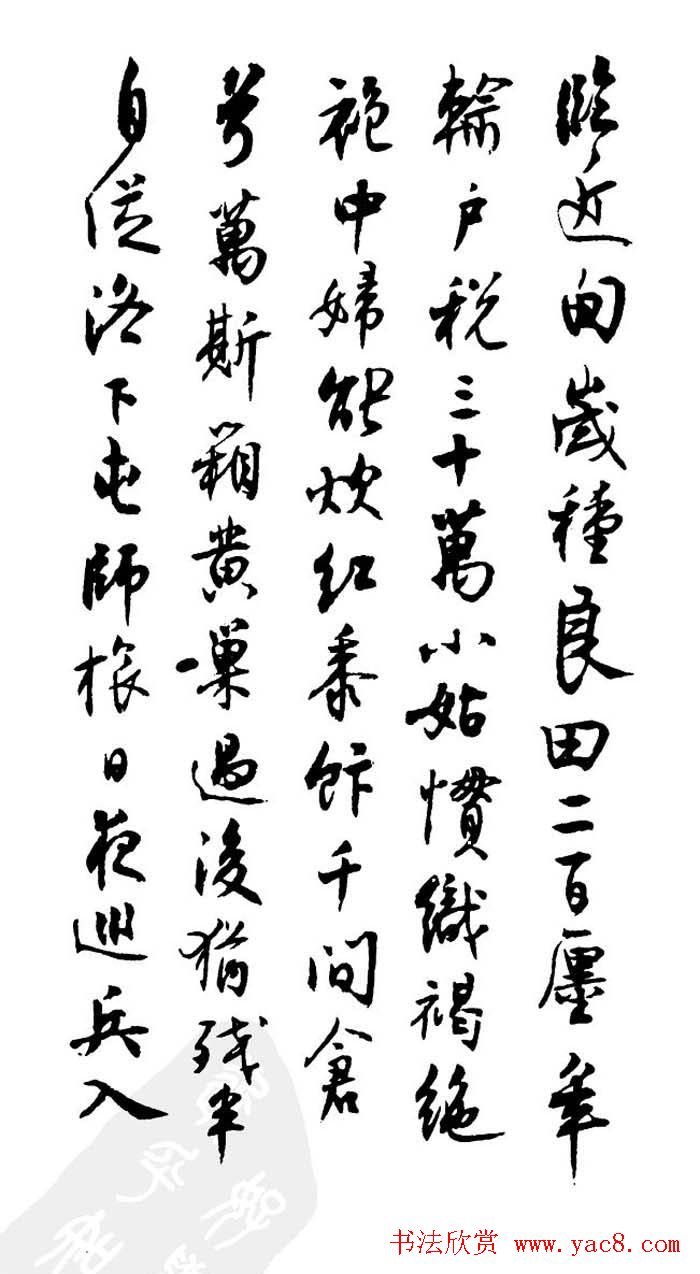 臨近甸歲種良田二百廛年
輸戶稅三十萬小姑慣織褐絁
袍中婦能炊紅黍飰千間倉
兮萬斯箱黃巢過後猶殘半
自從洛下屯師旅日夜巡兵入
书法欣赏 www.yac8.com